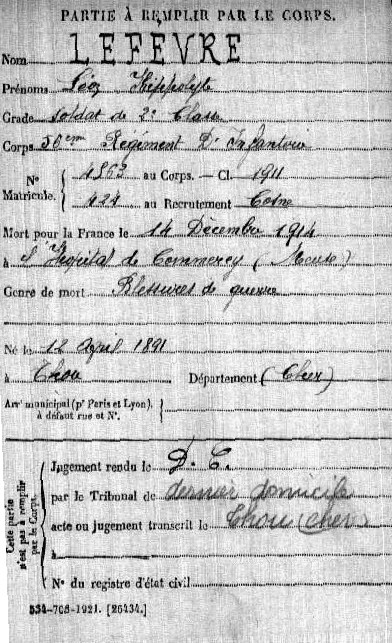 PARTIE À REMPLIR PAR LE CORPS.
Nom LEFEVRE
Prénoms Léon Hippolyte
Grade soldat de 2e Classe
Corps 56em Régiment D'Infanterie
N° Matricule. 4863 au Corps. — Cl. 1911
424 au Recrutement Cosne
Mort pour la France le 14 Décembre 1914
à l'Hopital de Commercy (Meuse)
Genre de mort Blessures de guerre
Né le 12 April 1891
à Thou Département (Cher)
Arrt municipal (pr Paris et Lyon), à défaut rue et N°.
Cette partie n'est pas à remplir par le Corps.
Jugement rendu le D. C.
par le Tribunal de dernier domicile
acte ou jugement transcrit le Thou (Cher)
à
N° du registre d'état civil
534-708-1921. [26434.]